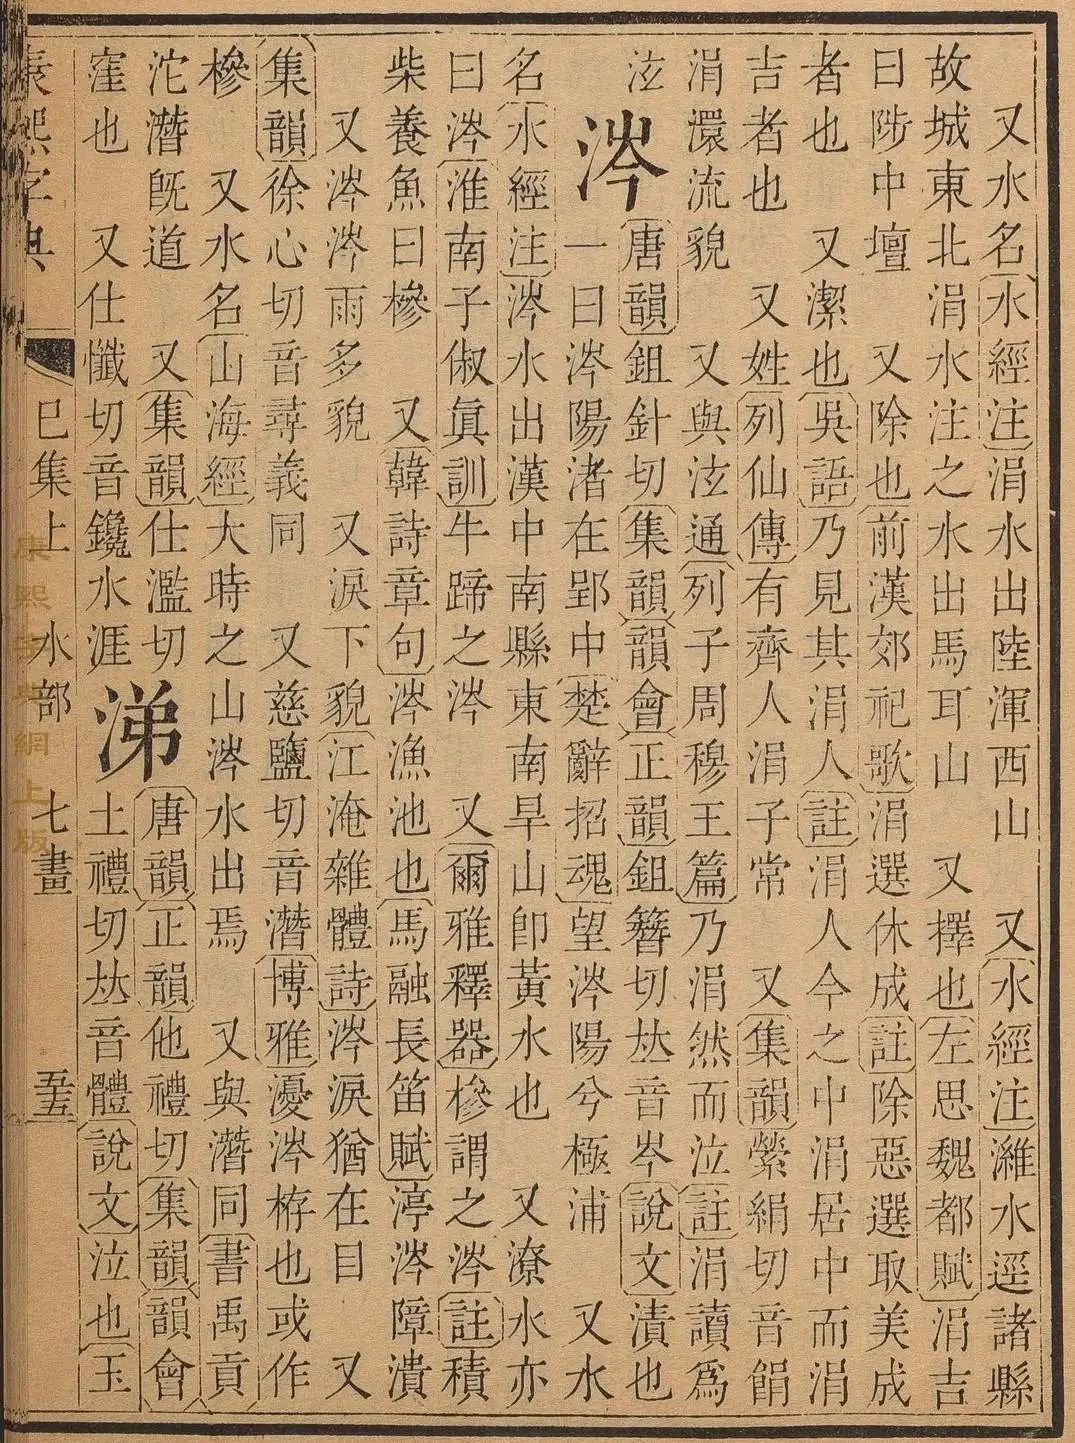 又水名水經注涓水出陸渾西山　又水經注濰水逕諸縣
故城東北涓水注之水出馬耳山　又擇也左思魏都賦涓吉
日陟中壇　又除也前漢郊祀歌涓選休成註除惡選取美成
者也　又潔也吳語乃見其涓人註涓人今之中涓居中而涓
吉者也　又姓列仙傳有齊人涓子常　又集韻縈絹切音䬼
涓澴流貌　又與泫通列子周穆王篇乃涓然而泣註涓讀爲
泫
涔
唐韻鉏針切集韻韻會正韻鉏簪切𠀤音岑說文漬也
一曰涔陽渚在郢中楚辭招魂望涔陽兮極浦　又水
名水經注涔水出漢中南縣東南旱山卽黃水也　又潦水亦
曰涔淮南子俶眞訓牛蹄之涔　又爾雅釋器槮謂之涔註積
柴養魚曰槮　又韓詩章句涔漁池也馬融長笛賦渟涔障潰
又涔涔雨多貌　又淚下貌江淹雜體詩涔淚猶在目　又
集韻徐心切音尋義同　又慈鹽切音潛博雅瀀涔栫也或作
槮　又水名山海經大時之山涔水出焉　又與潛同書禹貢
沱潛旣道　又集韻仕濫切
窪也　又仕懺切音鑱水涯
涕
唐韻正韻他禮切集韻韻會
土禮切𠀤音體說文泣也玉
康熙字典　巳集上　水部　七畫　五五
康熙字典網上版